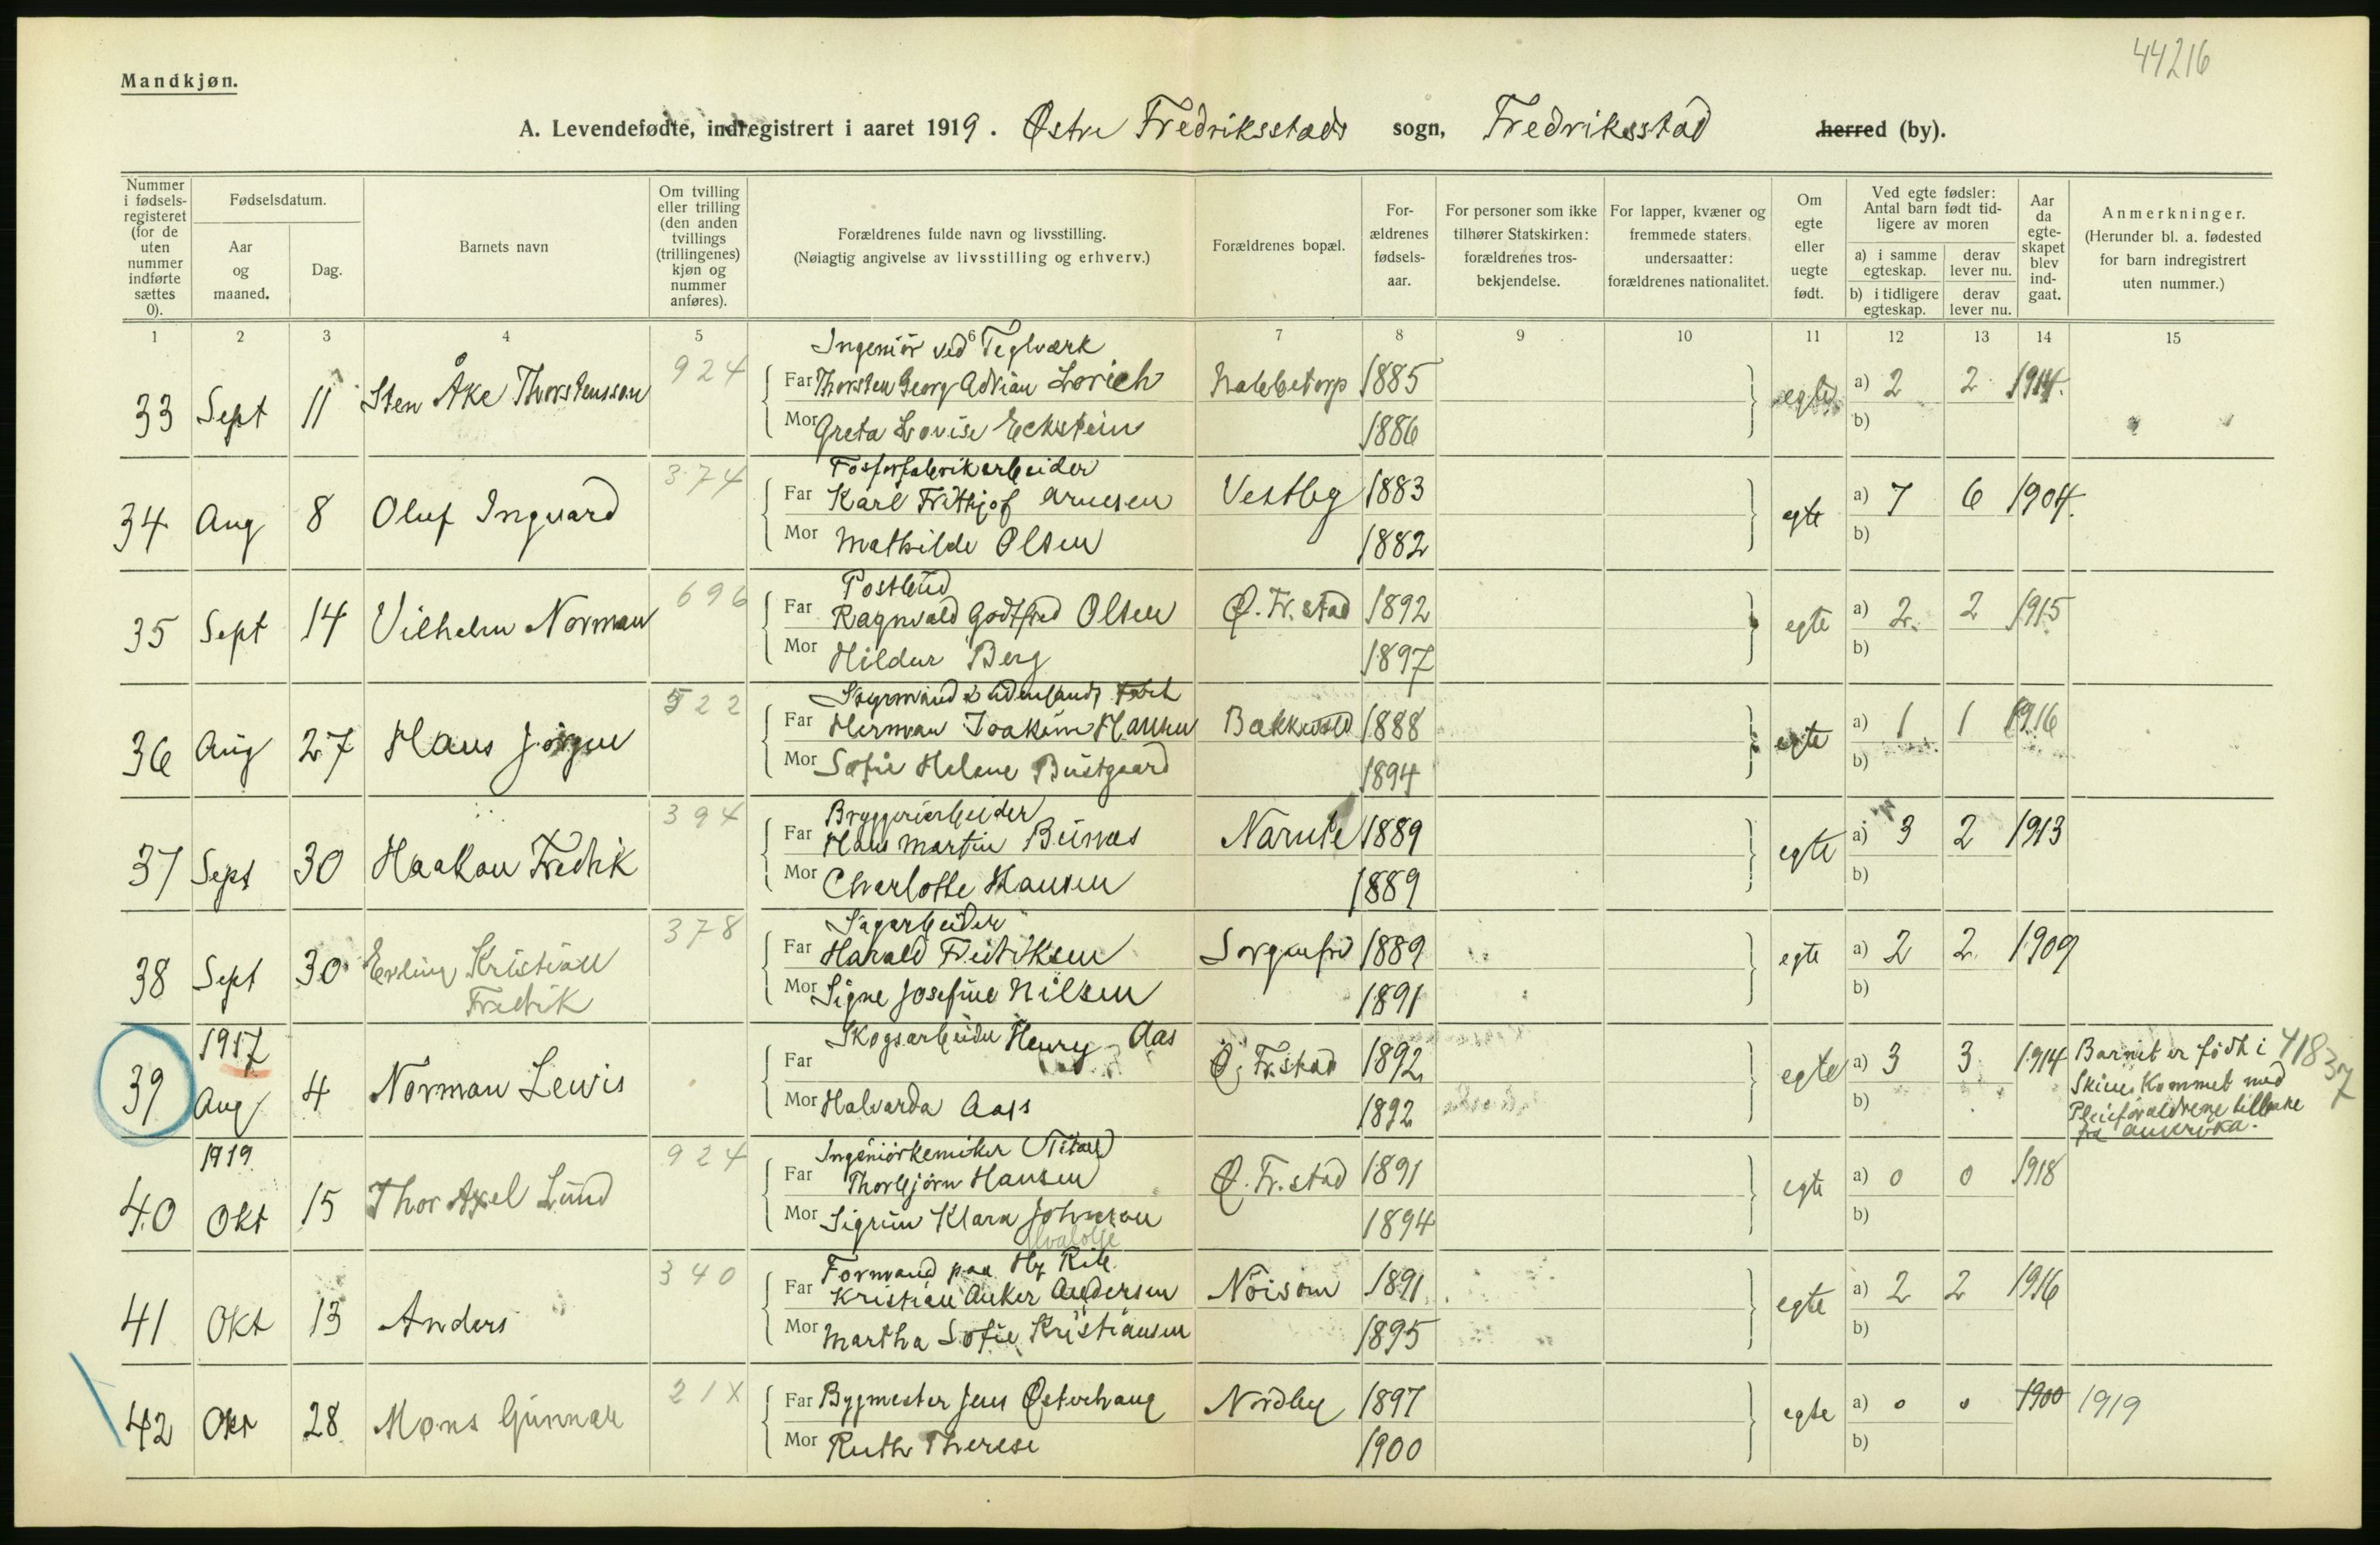 44216
Mandkjøn.
A. Levendefødte, indregistrert i aaret 1919. Østre Fredriksstads sogn, Fredriksstad herred (by).
Nummer i fødselsregisteret (for de uten nummer indførte sættes 0).
Fødselsdatum.
Aar og maaned.
Dag.
Barnets navn
Om tvilling eller trilling (den anden tvillings (trillingenes) kjøn og nummer anføres).
Forældrenes fulde navn og livsstilling.
(Nøiagtig angivelse av livsstilling og erhverv.)
Forældrenes bopæl.
Forældrenes fødselsaar.
For personer som ikke tilhører Statskirken: forældrenes trosbekjendelse.
For lapper, kvæner og fremmede staters undersaatter: forældrenes nationalitet.
Om egte eller uegte født.
Ved egte fødsler: Antal barn født tidligere av moren
a) i samme egteskap.
derav lever nu.
b) i tidligere egteskap.
derav lever nu.
Aar da egteskapet blev indgaat.
Anmerkninger.
(Herunder bl. a. fødested for barn indregistrert uten nummer.)
1 2 3 4 5 6 7 8 9 10 11 12 13 14 15
Ingeniør ved Teglværk
33 Sept 11 Sten Åke Thorstensson 924 Far Thorsten Georg Adrian Lorich Nabbetorp 1885 egte a) 2 2 1914.
Mor Greta Lovise Eckstein 1886 b)
Fosforfabrikarbeider
34 Aug 8 Oluf Ingvard 374 Far Karl Frithjof Arnesen Vestby 1883 egte a) 7 6 1904.
Mor Mathilde Olsen 1882 b)
Postbud
35 Sept 14 Vilhelm Norman 696 Far Ragnvald Godtfred Olsen Ø. Fr.stad 1892 egte a) 2 2 1915
Mor Hildur Berg 1897 b)
Styrmand i udenlands Fart
36 Aug 27 Hans Jørgen 522 Far Herman Joakim Hansen 1888 egte a) 1 1 1916
Mor Sofie Helene Bustgaard 1894 b)
Bryggeriarbeider
37 Sept 30 Haakon Fredrik 394 Far Hans Martin Narute 1889 egte a) 3 2 1913
Mor Charlotte Hansen 1889 b)
Sagarbeider
38 Sept 30 Erling Kristian Fredrik 378 Far Harald Fredriksen Sorgenfri 1889 egte a) 2 2 1909
Mor Signe Josefine Nilsen 1891 b)
1917
Skogsarbeider Henry Aas
39 Aug 4 Norman Lewis Far Ø. Fr.stad 1892 egte a) 3 3 1914 Barnet er født i 41837
Mor Halvarda Aas 1892 b) Skien. Kommet med
Pleieforældrene tilbake
fra Amerika.
1919
Ingeniørkemiker (Titan)
40 Okt 15 Thor Axel Lund 924 Far Thorbjørn Hansen Ø. Fr.stad 1891 egte a) 0 0 1918
Mor Sigrun Klara Johnson 1894 b)
hvalolje
Formand paa
41 Okt 13 Anders 340 Far Kristian Anker Andersen Nøisom 1891 egte a) 2 2 1916
Mor Martha Sofie Kristiansen 1895 b)
42 Okt 28 Mons Gunnar 21X Far Bygmester Jens Østerhaug Nordby 1897 egte a) 0 0 1900 1919
Mor Ruth Therese 1900 b)